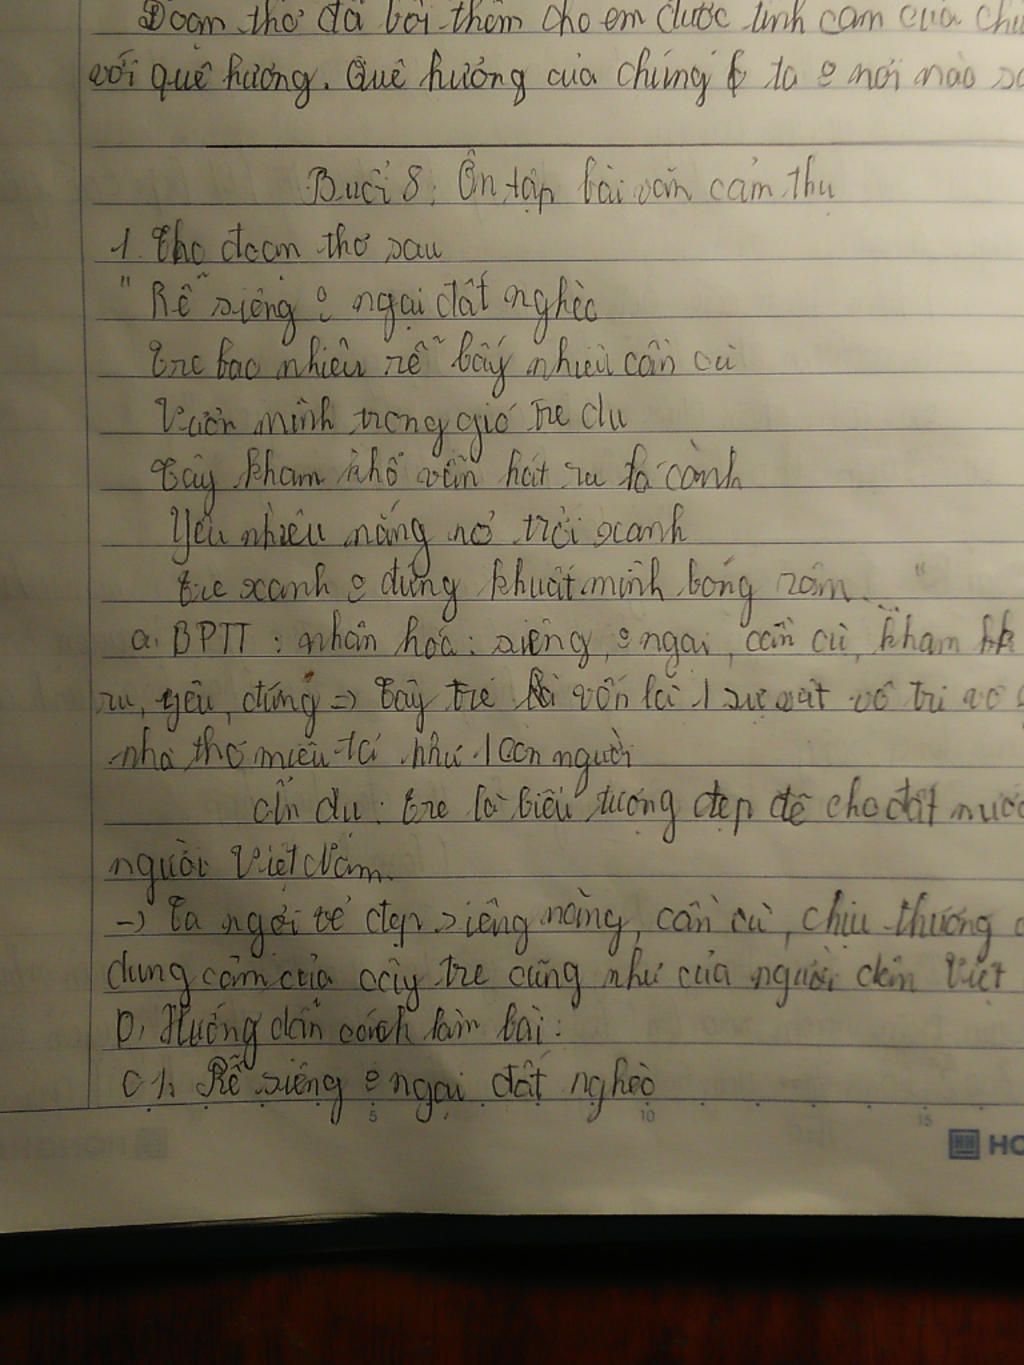 Đoạn thơ đã bồi thêm cho em được tình cảm của
với quê hương. Quê hương của chúng ta o nơi nào
Buổi 8: Ôn tập bài văn cảm thụ
1. Cho đoạn thơ sau
" Rễ siêng o ngại đất nghèo
Tre bao nhiêu rễ bấy nhiêu cần cù
Vươn mình trong gió tre đu
Cây kham khổ vẫn hát ru lá cành
Yêu nhiều nắng nỏ trời xanh
Tre xanh o đứng khuất mình bóng râm "
a. BPTT : nhân hoá : siêng, o ngại, cần cù, kham
ru, yêu, đứng => Cây tre vốn là 1 sự vật vô tri vô
nhà thơ miêu tả như 1 con người
ẩn dụ : Tre là biểu tượng đẹp đẽ cho đất
người Việt Nam.
-> Ca ngợi vẻ đẹp siêng năng, cần cù, chịu thương
dung cảm của cây tre cũng như của người dân Việt
b, Hướng dẫn cách làm bài :
C1, Rễ siêng o ngại đất nghèo
5 10 15